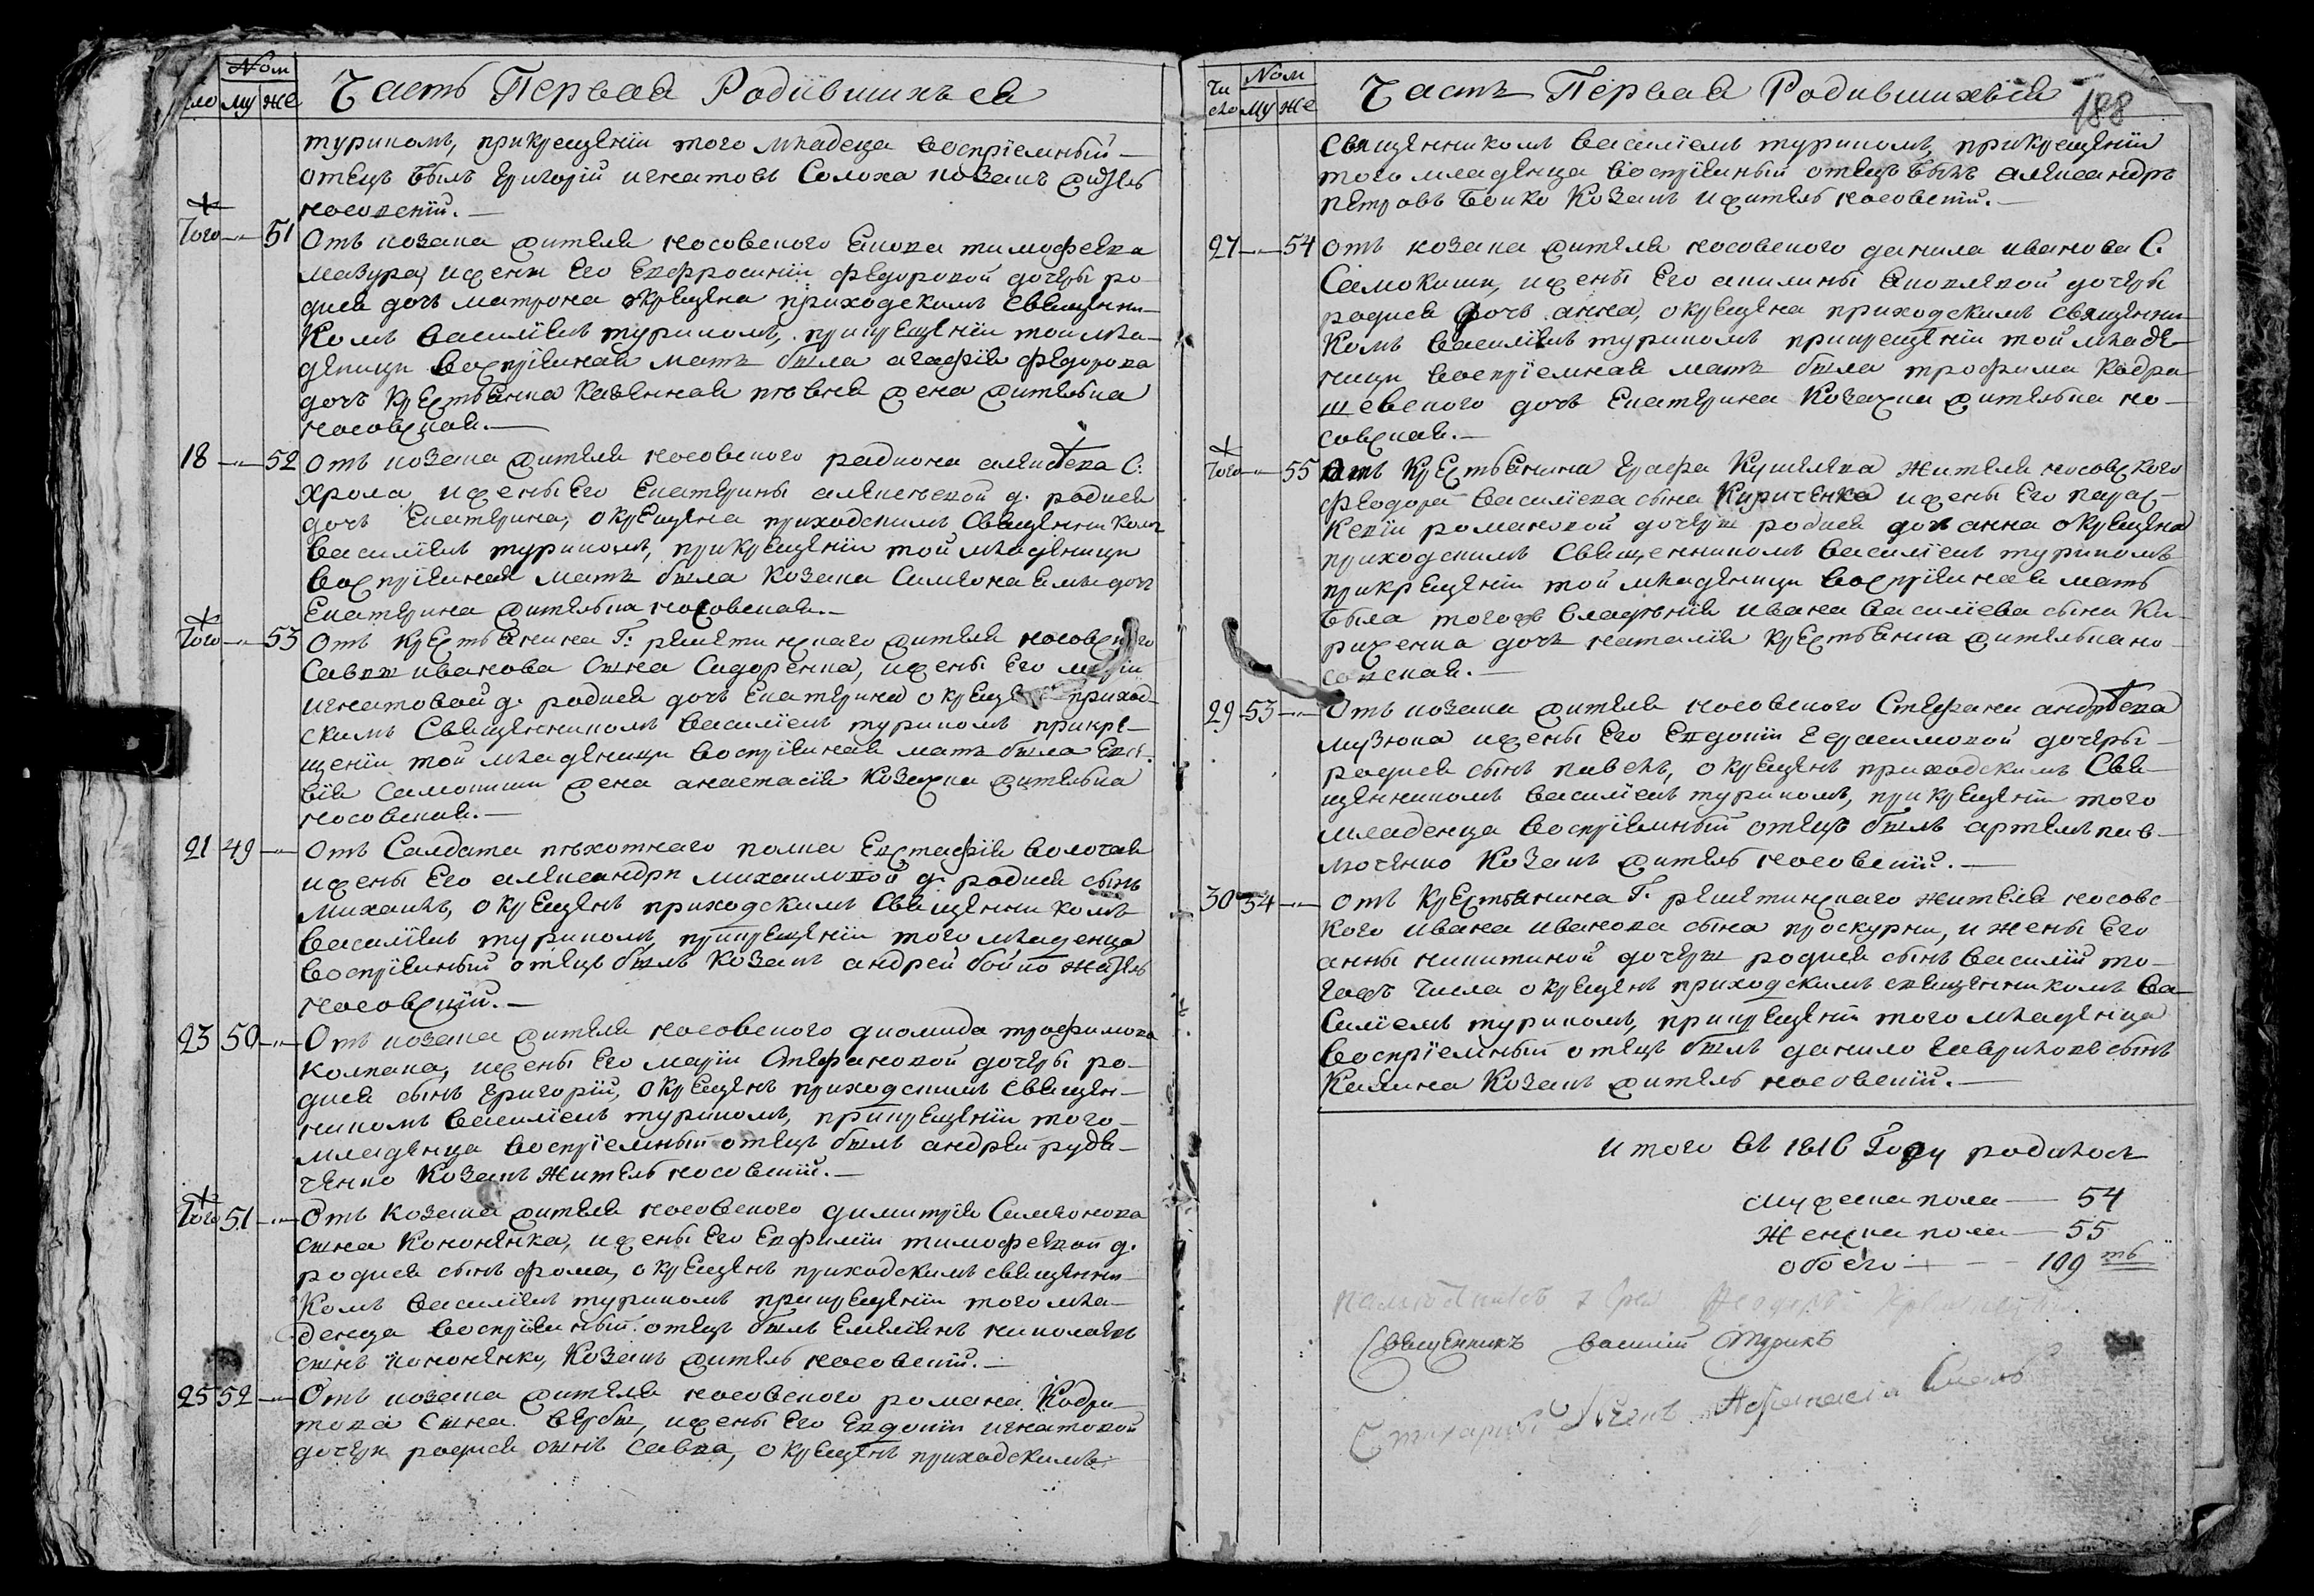 Nом
ло му же Часть Первая Родившихъся
туриномъ, прикрещении того младеца воспріемный
отецъ былъ Григорій игнатовъ Солоха козакъ житель
носовскій.
Того 51 Отъ козака жителя носовского Якова тимофеева
мазура, ижени Его Евфросиніи федоровой дочеры ро-
дися дочь матрона окрещена приходскимъ священни-
комъ василіемъ туриномъ, прикрещеніи тои мла-
деници воспріемная мать была агафія федорова
дочь крестьянка казенная жена жителька
носовская.
18 52 Отъ козака жителя носовского радиона алексѣева С:
Хрола, ижены Его Екатерины алексѣевой д. родися
дочь Екатерина, окрещена приходскимъ Священникомъ
василіемъ туриномъ, прикрещеніи той младеници
воспріемная мать была козака Симеона дочь
Екатерина жителька носовская.
Того 53 Отъ крестьянина Г: решетинскаго жителя носовского
Саввы иванова сына Сидоренка, ижены Его маріи
игнатовой д. родися дочь Екатерина окрещена приход-
скимъ Священникомъ василіемъ туриномъ прикре-
щеніи той младеници воспріемная мать была Евсе-
вія Самокиши жена анастасія козачка жителька
носовская.
21 49 Отъ Салдата пѣхотнаго полка Евстафія волочая
ижены Его александры михаиловой д. родися сынъ
михаилъ, окрещенъ приходскимъ Священникомъ
василіемъ туриномъ, прикрещеніи того младенца
воспріемный отецъ былъ козакъ андрей бойко житель
носовскій.
23 50 Отъ козака жителя носовского диомида трофимова
колпака, ижены Его маріи Стефановой дочеры ро-
дися сынъ Григорій, окрещенъ приходскимъ Священ-
никомъ василіемъ туриномъ, прикрещеніи того
младенца воспріемный отецъ былъ андрей рудя-
ченко козакъ житель носовскій.
Того 51 Отъ козака жителя носовского димитрія Симеонова
сына Кононенка, ижены Его Евфиміи тимофеевой д.
родися сынъ фома, окрещенъ приходскимъ священни-
комъ василіемъ туриномъ прикрещеніи того мла-
денца воспріемный отецъ былъ Емеліянъ николаевъ
сынъ кононенко, козакъ житель носовскій.
25 52 Отъ козака жителя носовского романа Кодра-
това Сына вербы, ижены Его Евдокіи игнатовой
дочери родися сынъ Савва, окрещенъ приходскимъ
Чи Nом
сло му же Часть Первая Родившихъся 188
Священникомъ василіемъ туриномъ, прикрещеніи
того младенца воспріемный отецъ былъ александръ
петровъ Бойко козакъ ижитель носовскій.
27 54 Отъ козака жителя носовского данила иванова С.
Самокиши, ижены Его акилины Яковлевой дочеры
родися дочь анна, окрещена приходскимъ священни-
комъ василіемъ туриномъ прикрещеніи той младе-
ници воспріемная мать была трофима кодра-
шевского дочь Екатерина козачка жителька но-
совская.
Того 55 Отъ крестьянина графа Кушелева жителя носовского
феодора василіева сына Кириченка ижены Его парас-
кевіи романовой дочеры родися дочь анна окрещена
приходскимъ Священникомъ василіемъ туриномъ
прикрещеніи той младеници воспріемная мать
была тогожъ владѣнія ивана василіева сына Ки-
риченка дочь наталія крестьянка жителька но-
совская.
29 53 Отъ козака жителя носовского Стефана андрѣева
музюка ижены Его Евдокіи Герасимовой дочеры
родися сынъ павелъ, окрещенъ приходскимъ Свя-
щенникомъ василіемъ туриномъ, прикрещеніи того
младенца воспріемный отецъ былъ артемъ пав-
люченко козакъ житель носовскій.
30 54 Отъ крестьянина Г. решетинскаго жителя носовс-
кого ивана иванова сына проскурни, и жены Его
анны никитиной дочеры родися сынъ василій то-
гожъ числа окрещенъ приходскимъ священникомъ ва-
силіемъ туриномъ, прикрещеніи того младенца
воспріемный отецъ былъ данило гавриловъ сынъ
калина козакъ житель носовскій.
итого въ 1816 Году родилось
мужеска пола — 54
женска пола — 55
обоего — 109 ть
Священникъ василій Туринъ
Стихарный Дьячекъ Афанасій